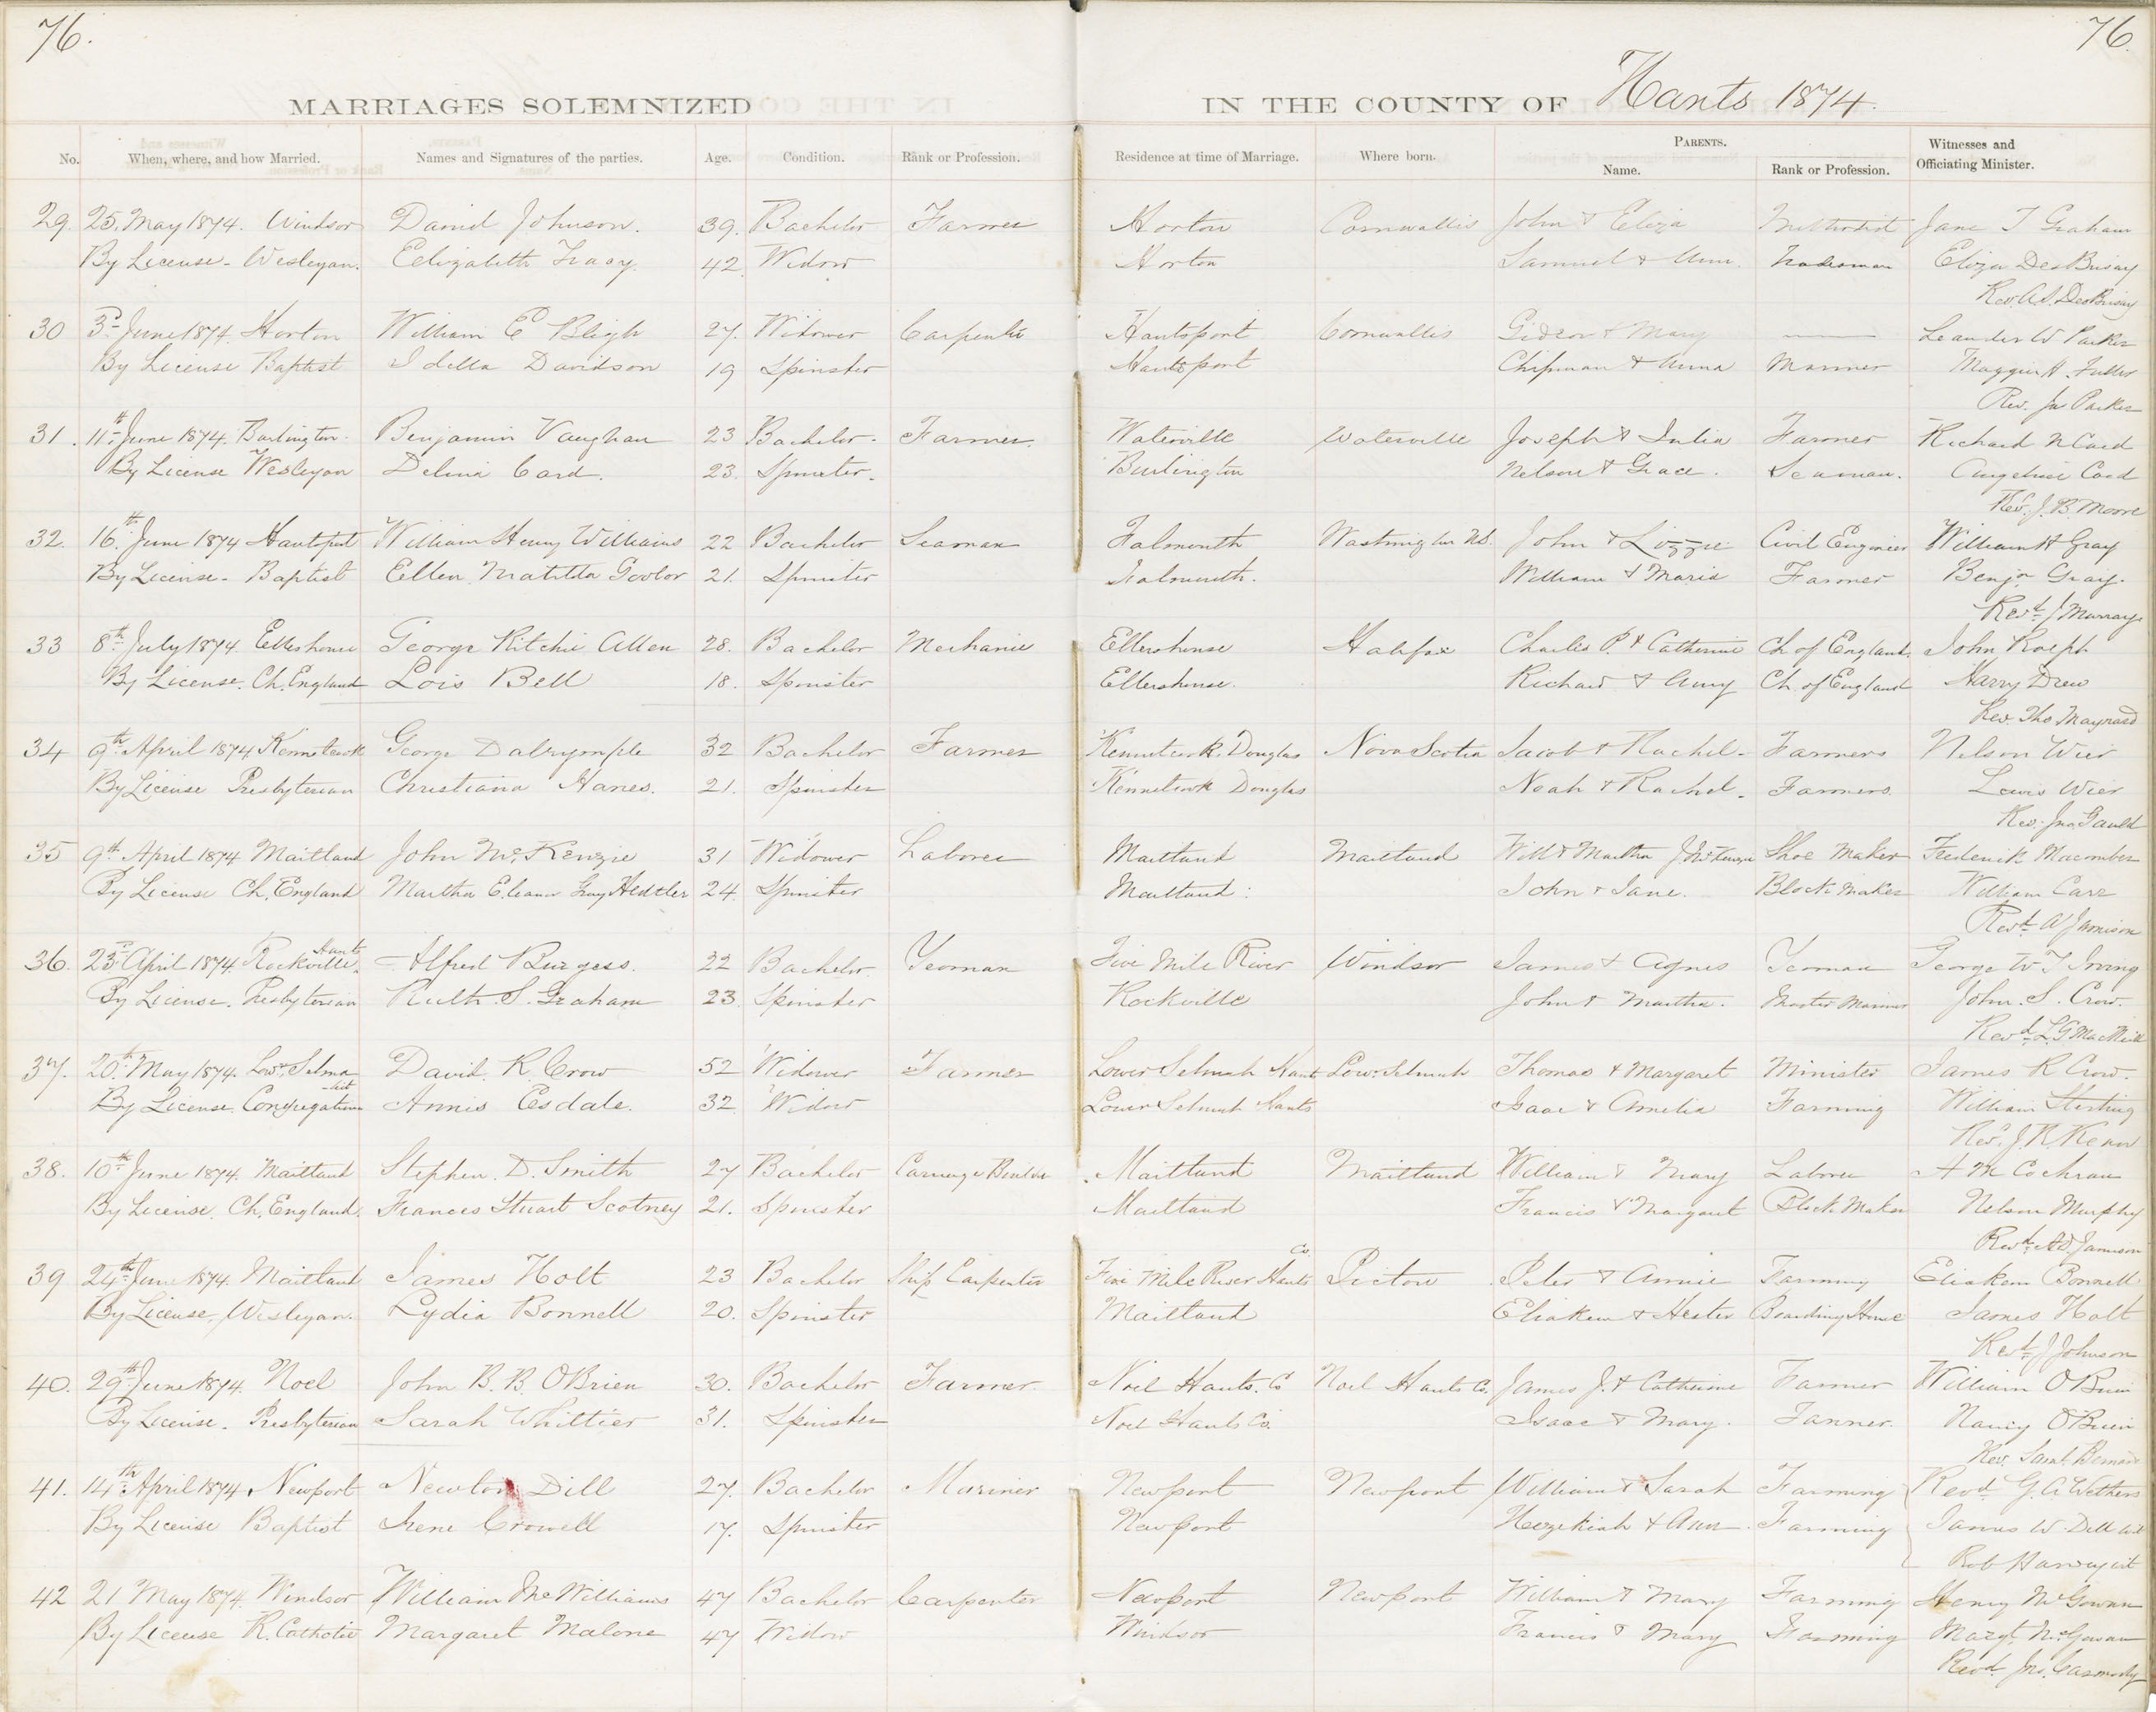 76.
76.
MARRIAGES SOLEMNIZED IN THE COUNTY OF Hants 1874.
No. When, where, and how Married. Names and Signatures of the parties. Age. Condition. Rank or Profession. Residence at time of Marriage. Where born. PARENTS. Name. Rank or Profession. Witnesses and Officiating Minister.
29. 25. May 1874. Windsor David Johnson. 39. Bachelor Farmer Horton Cornwallis John & Eliza Methodist Jane T Graham
By License - Wesleyan. Elizabeth Tracy. 42 Widow Horton Samuel & Ann. Tradesman Eliza DesBrisay
Rev. A.S. DesBrisay
30 3d June 1874. Horton William E Bligh 27. Widower Carpenter Hantsport Cornwallis Gideon & Mary Leander W Parker
By License Baptist Idella Davidson 19 Spinster Hantsport Chipman & Anna Mariner Maggie H. Fuller
Rev. Js Parker
31. 11th June 1874. Burlington. Benjamin Vaughan 23 Bachelor. Farmer. Waterville Waterville Joseph & Julia Farmer Richard N Card
By License Wesleyan Delina Card. 23. Spinster. Burlington Nelson & Grace. Seaman. Angeline Card
Rev. J. B. Moore
32. 16th June 1874 Hantsport William Henry Williams 22 Bachelor Seaman Falmouth Washington US. John & Lizzie Civil Engineer William H Gray
By License - Baptist Ellen Matilda 21. Spinster Falmouth. William & Maria Farmer Benjn Gray.
Revd J Murray
33 8th July 1874 Ellershouse George Ritchie Allen 28. Bachelor Mechanic Ellershouse Halifax Charles P. & Catherine Ch of England. John Rolph
By License. Ch. England Lois Bell 18. Spinster Ellershouse. Richard & Amy Ch. of England Harry Drew
Rev. Tho Maynard
34 9th April 1874 Kennetcook George Dalrymple 32 Bachelor Farmer Kennetcook Douglas Nova Scotia Jacob & Rachel - Farmers Nelson Wier
By License Presbyterian Christiana Hanes. 21. Spinster Kennetcook Douglas Noah & Rachel. Farmers. Lewis Wier
Rev. Jno. Gauld
35 9th April 1874 Maitland John McKenzie 31 Widower Laborer Maitland Maitland Will & Martha J McKenzie Shoe Maker Frederick Macomber
By License Ch. England Martha Eleanor Gray Hedtler 24. Spinster Maitland. John & Jane. Block Maker William Carr
Revd A Jamison
36. 23d April 1874 Rockville. Hants Alfred Burgess. 22 Bachelor. Yeoman Five Mile River Windsor James & Agnes Yeoman George W T Irving
By License. Presbyterian Ruth. S. Graham 23. Spinster Rockville John & Martha. Master Mariner John. S. Crow.
Revd L G MacNeill
37. 20th May 1874. Lowr Selma David. R. Crow 52 Widower Farmer Lower Selmah Hants Lowr Selmah Thomas & Margaret Minister James R Crow.
By License. Congregationalist Annis Esdale. 32 Widow Lower Selmah Hants Isaac & Amelia Farming William Sterling
Revd. J. R. Kean
38. 10th June 1874. Maitland Stephen. D. Smith 27 Bachelor Carriage Builder Maitland Maitland William & Mary Laborer A M Cochran
By License. Ch. England. Frances Stuart Scotney 21. Spinster Maitland Francis & Margaret Block Maker Nelson Murphy
Revd. A D. Jamison
39 24th June 1874. Maitland James Holt 23 Bachelor Ship Carpenter Five Mile River Hants Co. Pictou Peter & Annie Farming Eliakem Bonnell
By License, Wesleyan. Lydia Bonnell 20. Spinster Maitland Eliakem & Hester Boarding House James Holt
Revd. J Johnson
40. 29th June 1874. Noel John B. B. OBrien 30. Bachelor Farmer. Noel Hants. Co Noel Hants Co. James J. & Catherine Farmer William OBrien
By License. Presbyterian Sarah Whittier 31. Spinster Noel Hants Co. Isaac & Mary. Farmer. Nancy OBrien
Rev. Saml. Bernard
41. 14th April 1874. Newport Newton Dill 27. Bachelor Mariner Newport Newport William & Sarah Farming Revd G. A Wethers
By License Baptist Irene Crowell 17. Spinster Newport Hezekiah & Ann. Farming James W. Dill wit
Rob Harvey wit
42 21 May 1874. Windsor William McWilliams 47 Bachelor Carpenter Newport Newport William & Mary Farming Henry McGowan
By License R. Catholic Margaret Malone 47 Widow Windsor Francis & Mary Farming Margt. McGowan
Revd Jno. Carmody